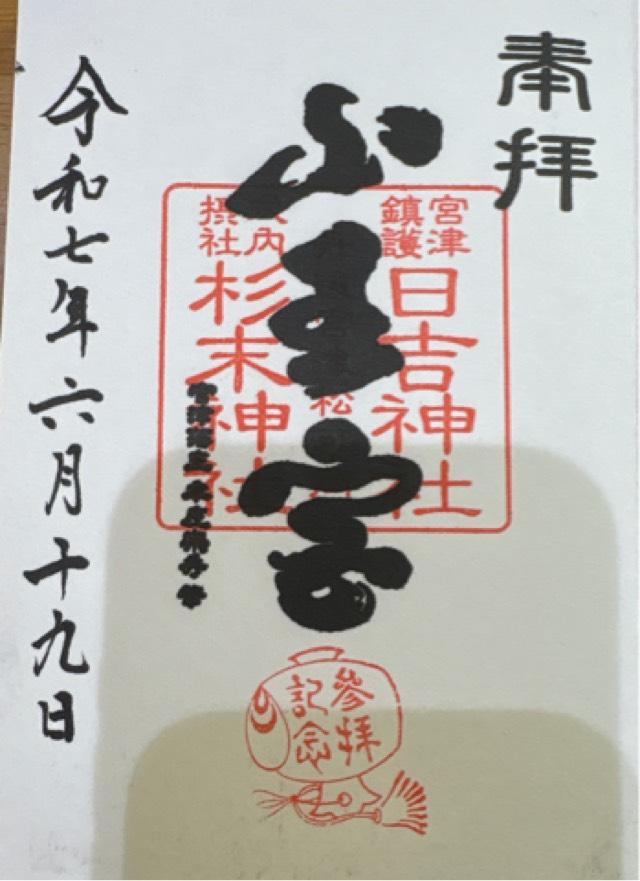 奉拝
山王宮
宮津
鎮護
日吉神社
摂社
杉末神社
参拝
記念
令和七年六月十九日